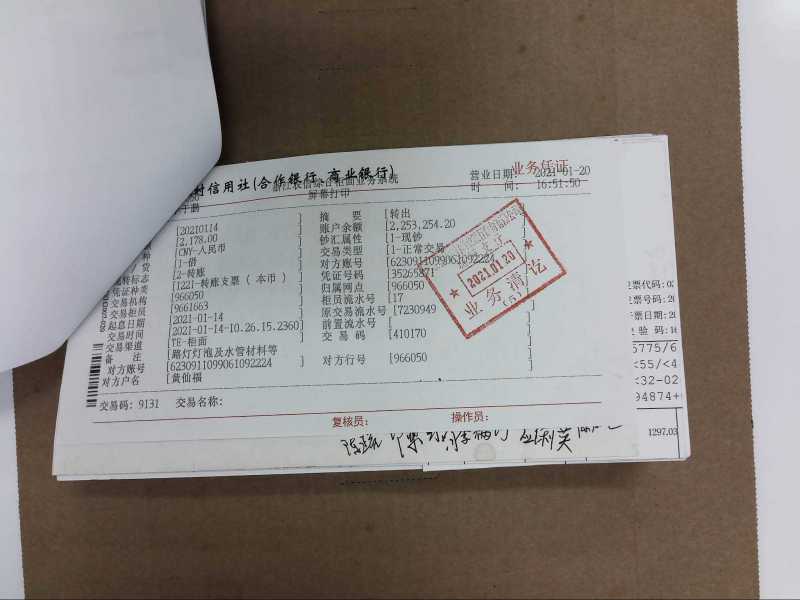 村信用社(合作银行、商业银行)
业务凭证
浙江农信综合柜面业务系统
营业日期: 2021-01-20
屏幕打印
时 间: 16:51:50
[20210114 ] 摘 要 [转出
[2,178.00 ] 账户余额 [2,253,254.20
种 [CNY-人民币 ] 钞汇属性 [1-现钞
[1-借 ] 交易类型 [1-正常交易
[2-转账 ] 对方账号 [6230911099061092224 ]
凭证种类 [122I-转账支票(本币) ] 凭证号码 [35265871
交易机构 [966050 ] 归属网点 [966050
交易柜员 [9661663 ] 柜员流水号 [17
起息日期 [2021-01-14 ] 原交易流水号 [7230949
交易时间 [2021-01-14-10.26.15.2360] 前置流水号 [
交易渠道 [TE-柜面 ] 交 易 码 [410170
备 注 [路灯灯泡及水管材料等
对方账号 [6230911099061092224 ] 对方行号 [966050 ]
对方户名 [黄仙福
交易码: 9131 交易名称:
复核员: 操作员:
2021.01.20
业务清讫
(5)
票代码:0
票号码:20
票日期:2
验 码:
5775/6
<55/<4
<32-02
94874+
1297.03